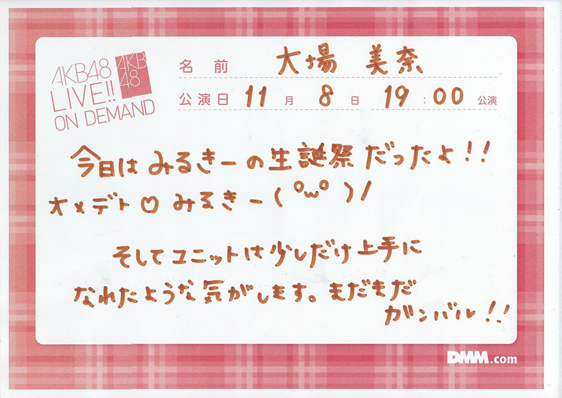 AKB48
LIVE!!
ON DEMAND
AKB
48
名前 大場 美奈
公演日 11月 8日 19:00 公演
今日は みるきーの生誕祭だったよ!!
オメデト♡みるきー(°ω°)/
そしてユニットは少しだけ上手に
なれたような気がします。まだまだ
ガンバル!!
DMM.com